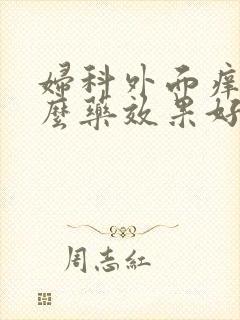 婦科外而痒
麼藥效果好
周志紅